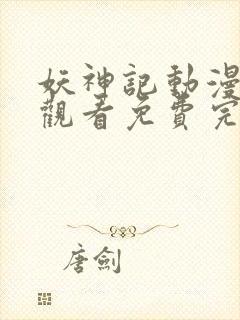 妖神記動漫
觀看免費完
唐劍